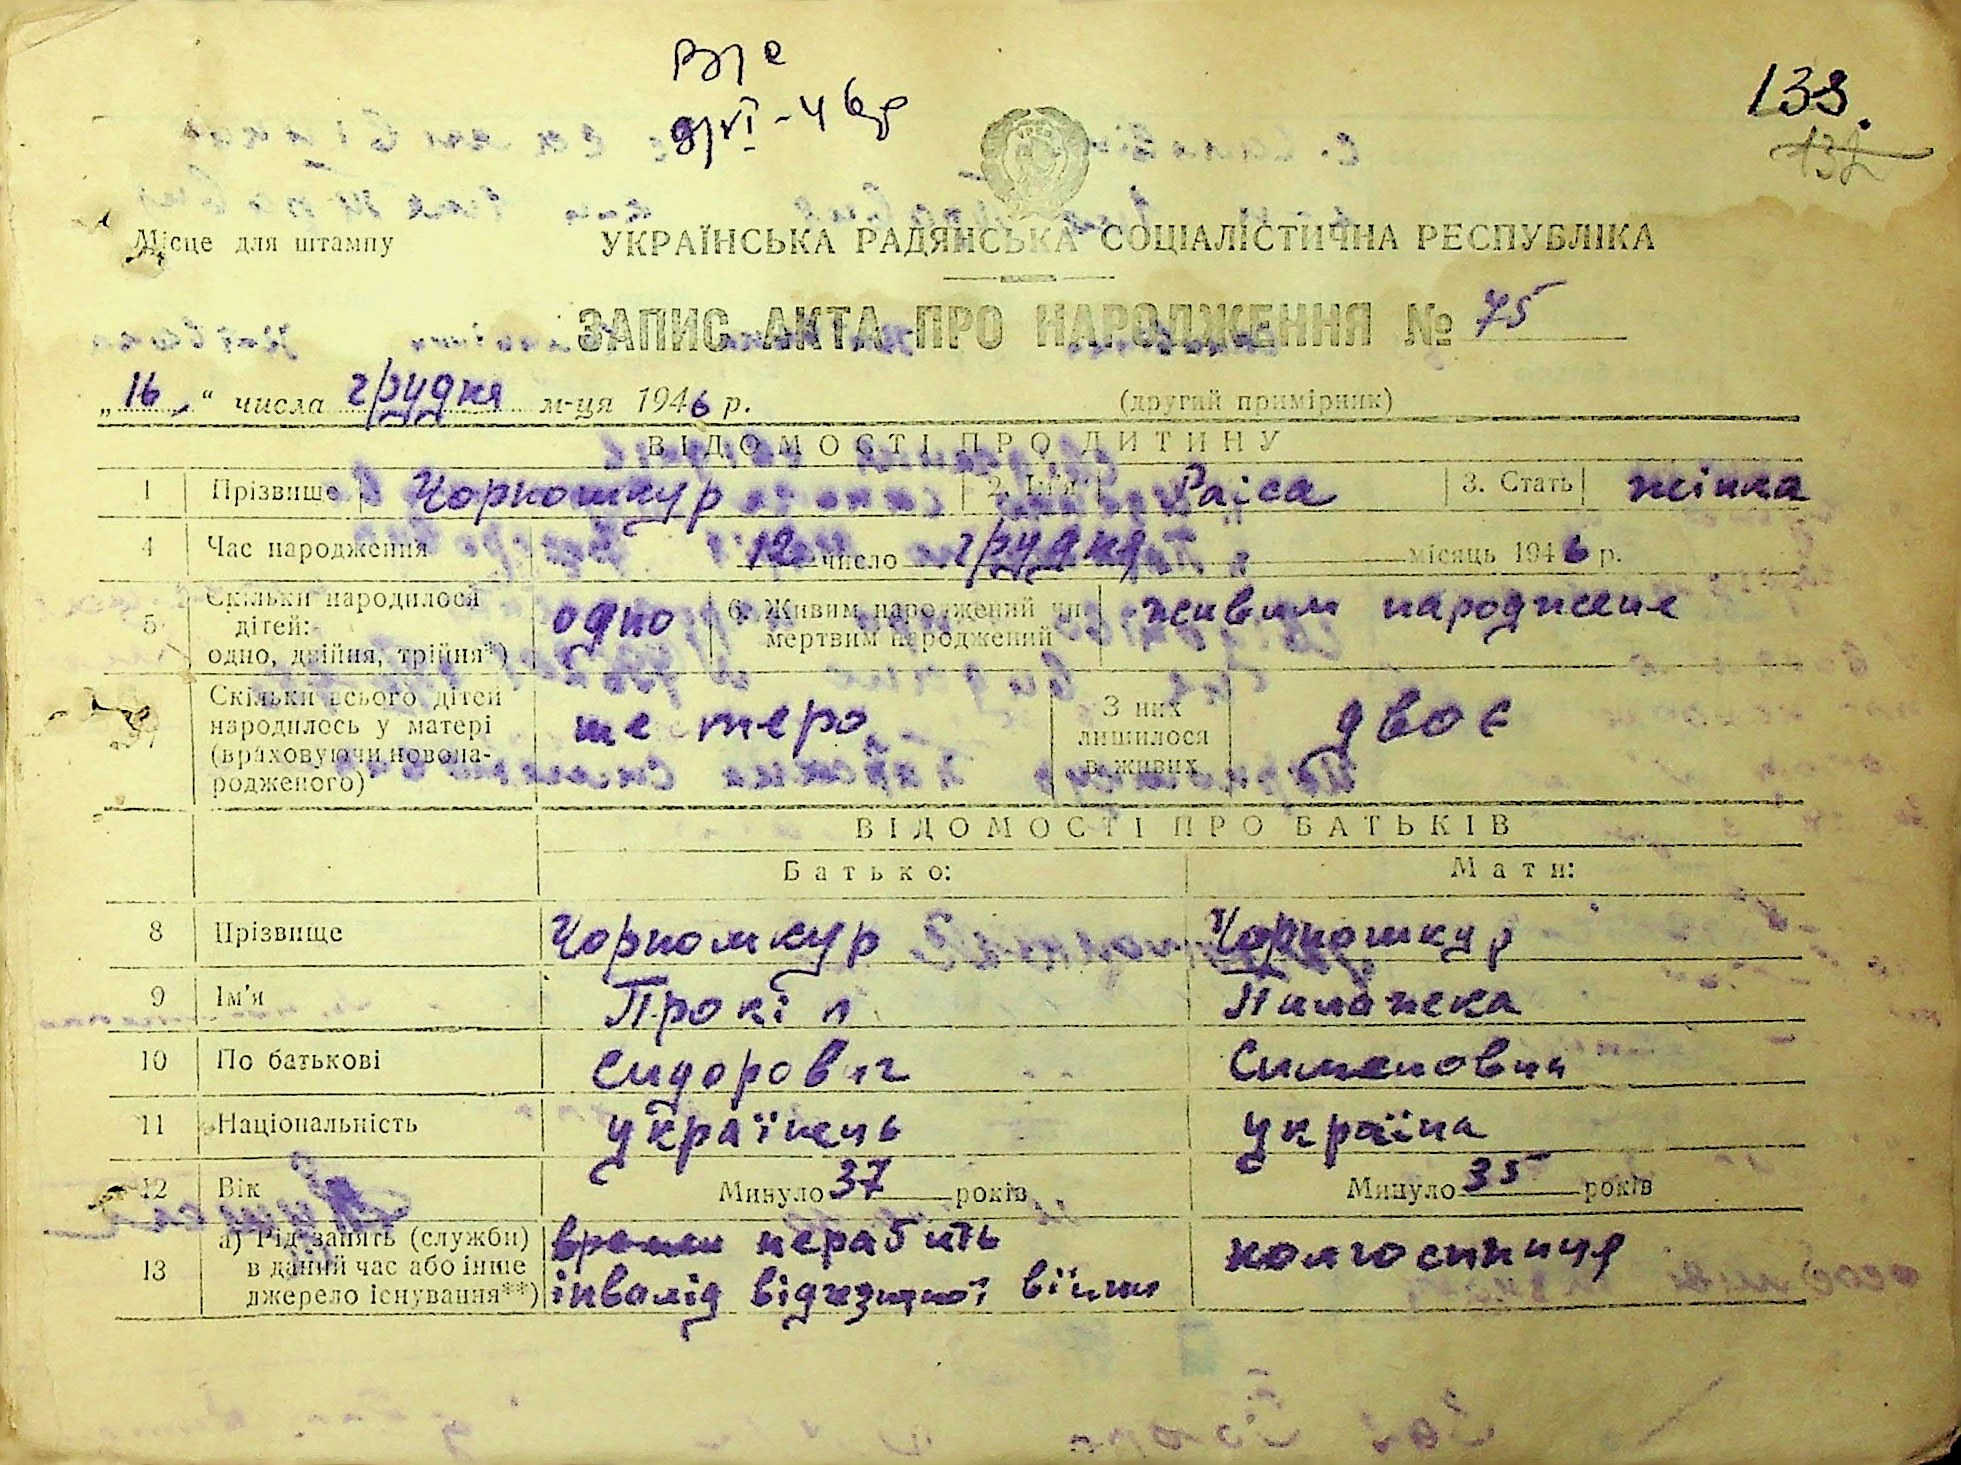 133.
132
Місце для штампу
УКРАЇНСЬКА РАДЯНСЬКА СОЦІАЛІСТИЧНА РЕСПУБЛІКА
ЗАПИС АКТА ПРО НАРОДЖЕННЯ № 75
„16“ числа грудня м-ця 1946 р. (другий примірник)
ВІДОМОСТІ ПРО ДИТИНУ
1 Прізвище Чорношкур 2. Ім'я Раіса 3. Стать жінка
4 Час народження 12 число грудня місяць 1946 р.
5 Скільки народилося дітей: одно, двійня, трійня*) одно 6. Живим народжений чи мертвим народжений живим народжене
7 Скільки всього дітей народилось у матері (враховуючи новона-родженого) шетеро З них лишилося в живих двоє
ВІДОМОСТІ ПРО БАТЬКІВ
Батько: Мати:
8 Прізвище Чорношкур Чорношкур
9 Ім'я Прокіп Пилажека
10 По батькові Сидоровіч Сименовна
11 Національність українець україна
12 Вік Минуло 37 років Минуло 35 років
13 а) Рід занять (служби) в даний час або інше джерело існування**) неработть інвалід війни колгоспниця